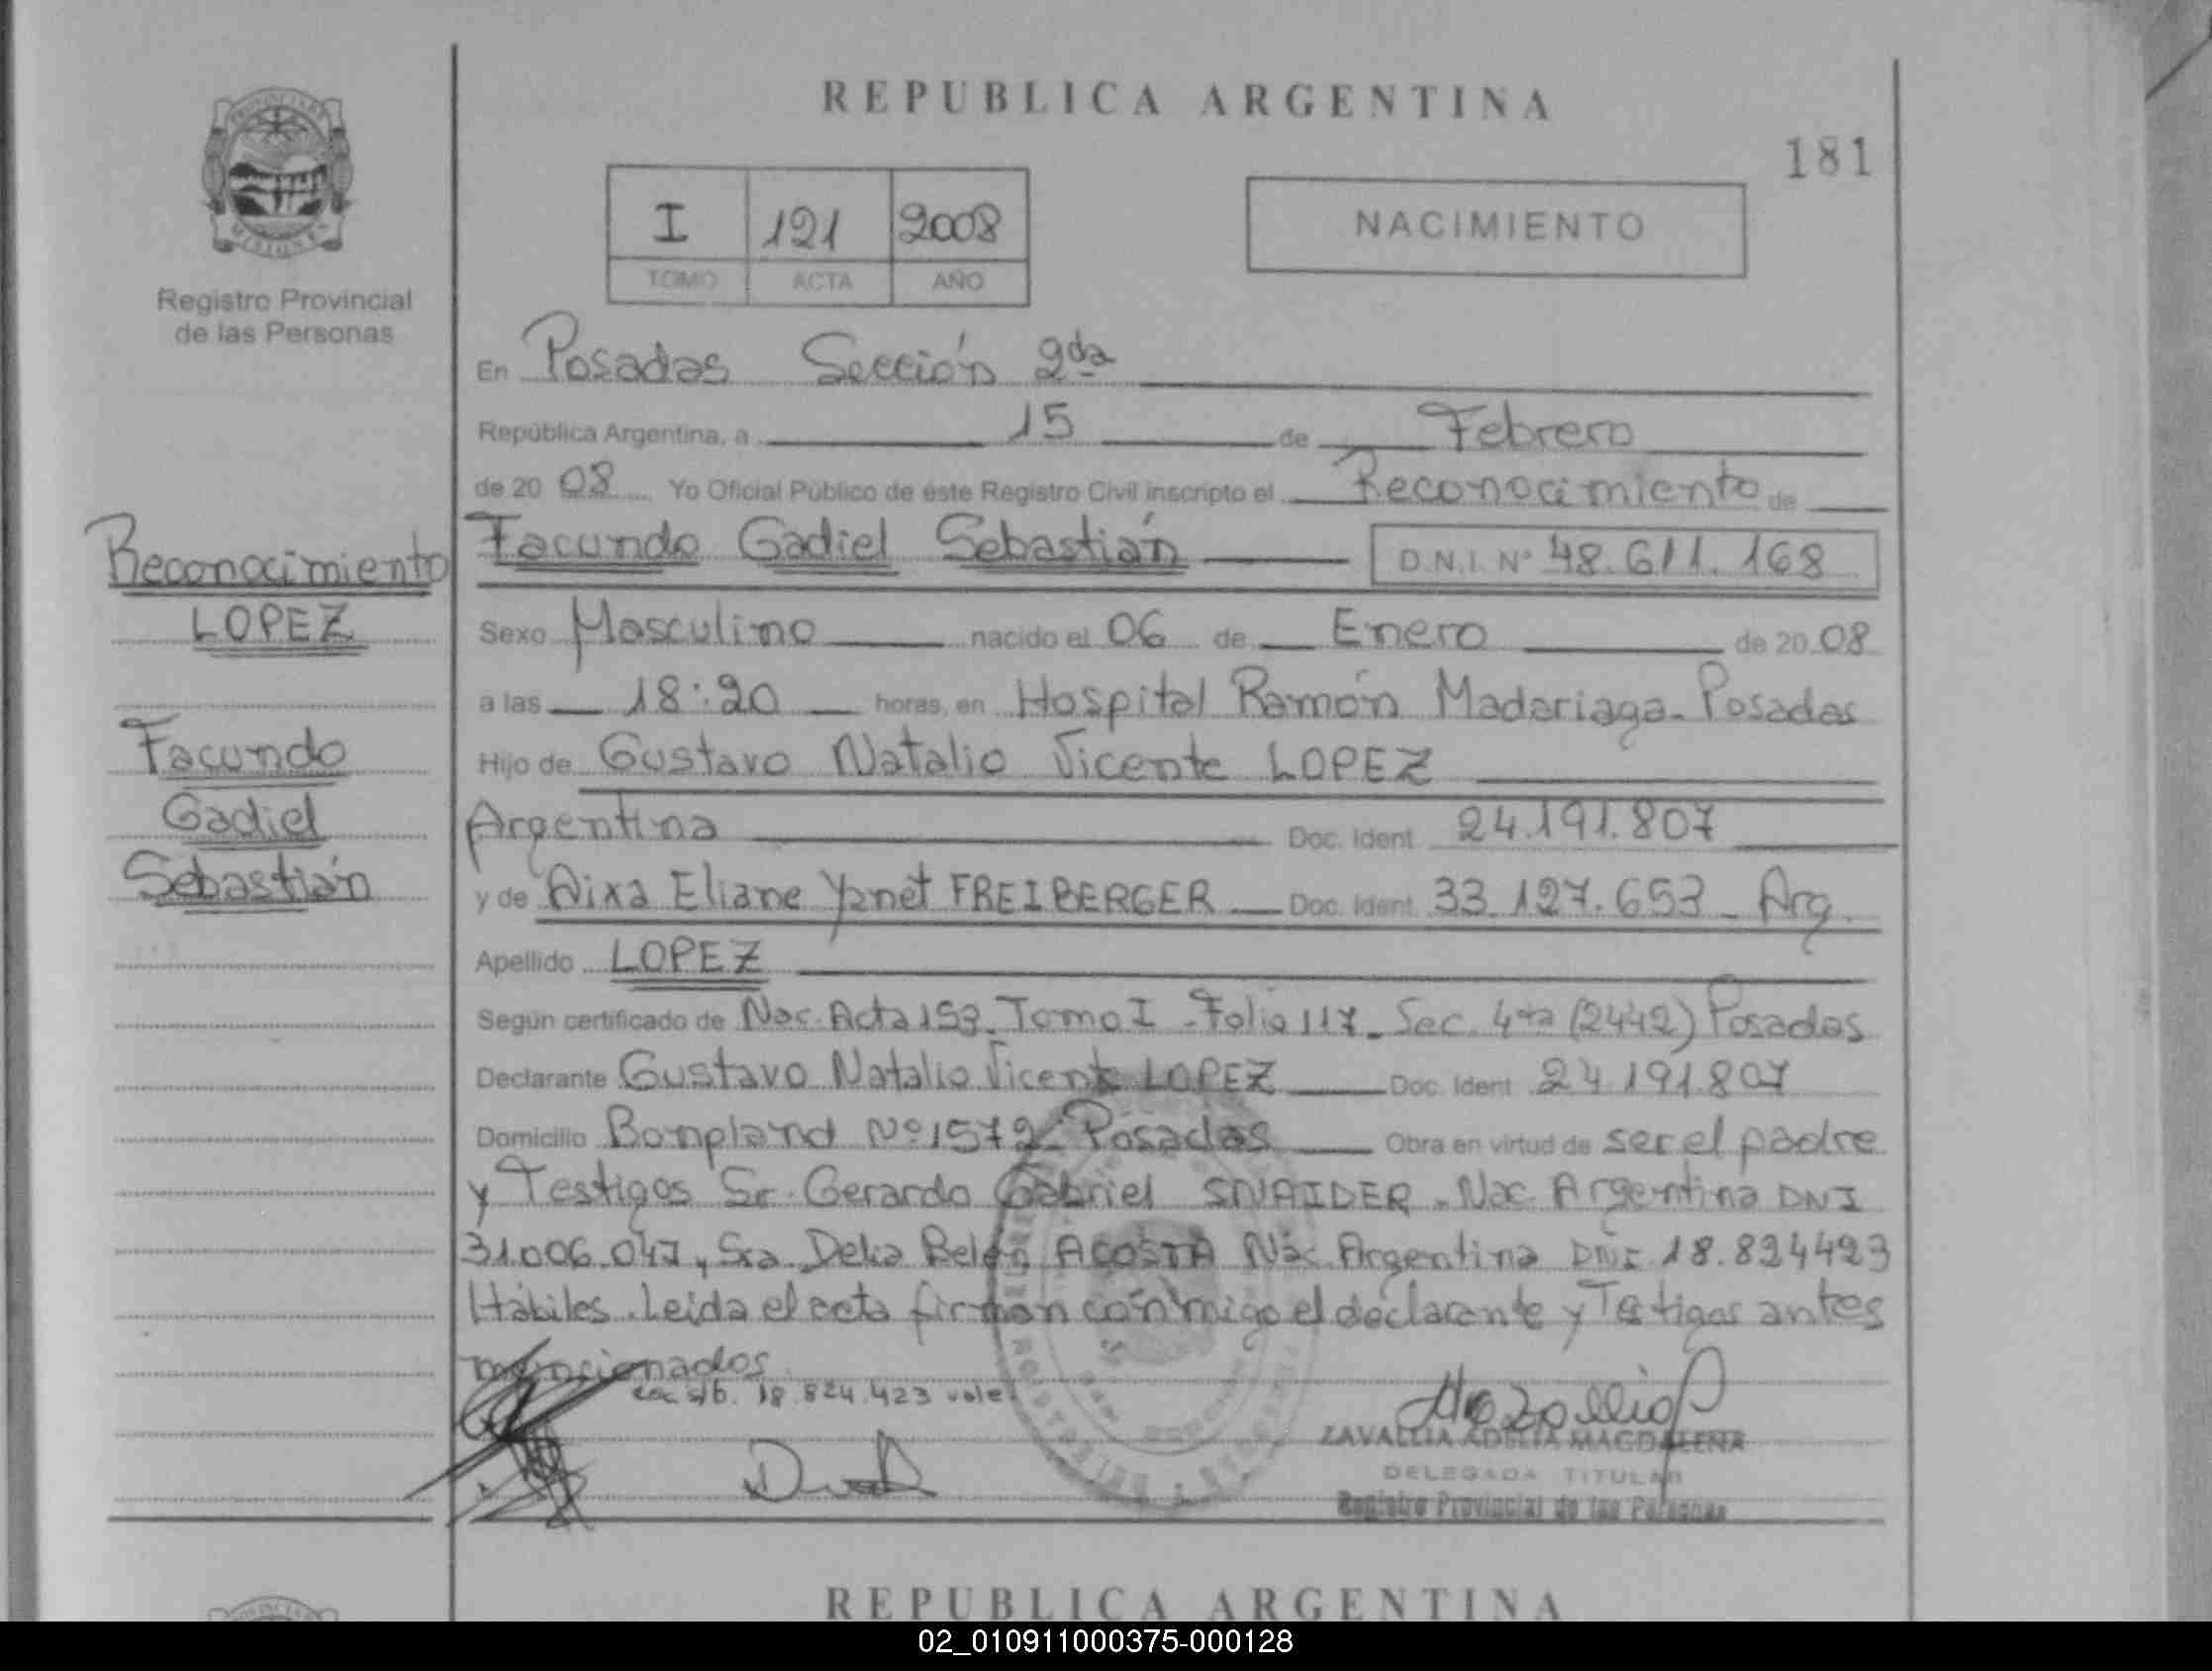 REPUBLICA ARGENTINA
181
I 121 2008
TOMO ACTA AÑO
NACIMIENTO
PROVINCIA
MISIONES
Registro Provincial
de las Personas
En Posadas Sección 2da
República Argentina, a 15 de Febrero
de 20 08 Yo Oficial Público de éste Registro Civil inscripto el Reconocimiento de
Facundo Gadiel Sebastián D.N.I. Nº 48.611.168
Reconocimiento
LOPEZ
Facundo
Gadiel
Sebastián
Sexo Masculino nacido el 06 de Enero de 20 08
a las 18:20 horas, en Hospital Ramón Madariaga - Posadas
Hijo de Gustavo Natalio Vicente LOPEZ
Argentina Doc. Ident. 24.191.807
y de Aixa Eliane Yanet FREIBERGER Doc. Ident. 33.127.653 - Arg.
Apellido LOPEZ
Según certificado de Nac. Acta 153 - Tomo I - Folio 117 - Sec. 4ta (2442) Posadas
Declarante Gustavo Natalio Vicente LOPEZ Doc. Ident. 24.191.807
Domicilio Bonpland Nº 1572 Posadas Obra en virtud de ser el padre
y Testigos Sr. Gerardo Gabriel SNAIDER - Nac. Argentina DNI
31.006.047, Sra. Delia Belén ACOSTA Nac. Argentina DNI 18.824423
Hábiles. Leida el acta firman conmigo el declarante y Testigos antes
mencionados.
18.824.423 vale
ZAVALLIA ADELIA MAGDALENA
DELEGADA TITULAR
Registro Provincial de las Personas
REPUBLICA ARGENTINA
02_010911000375-000128